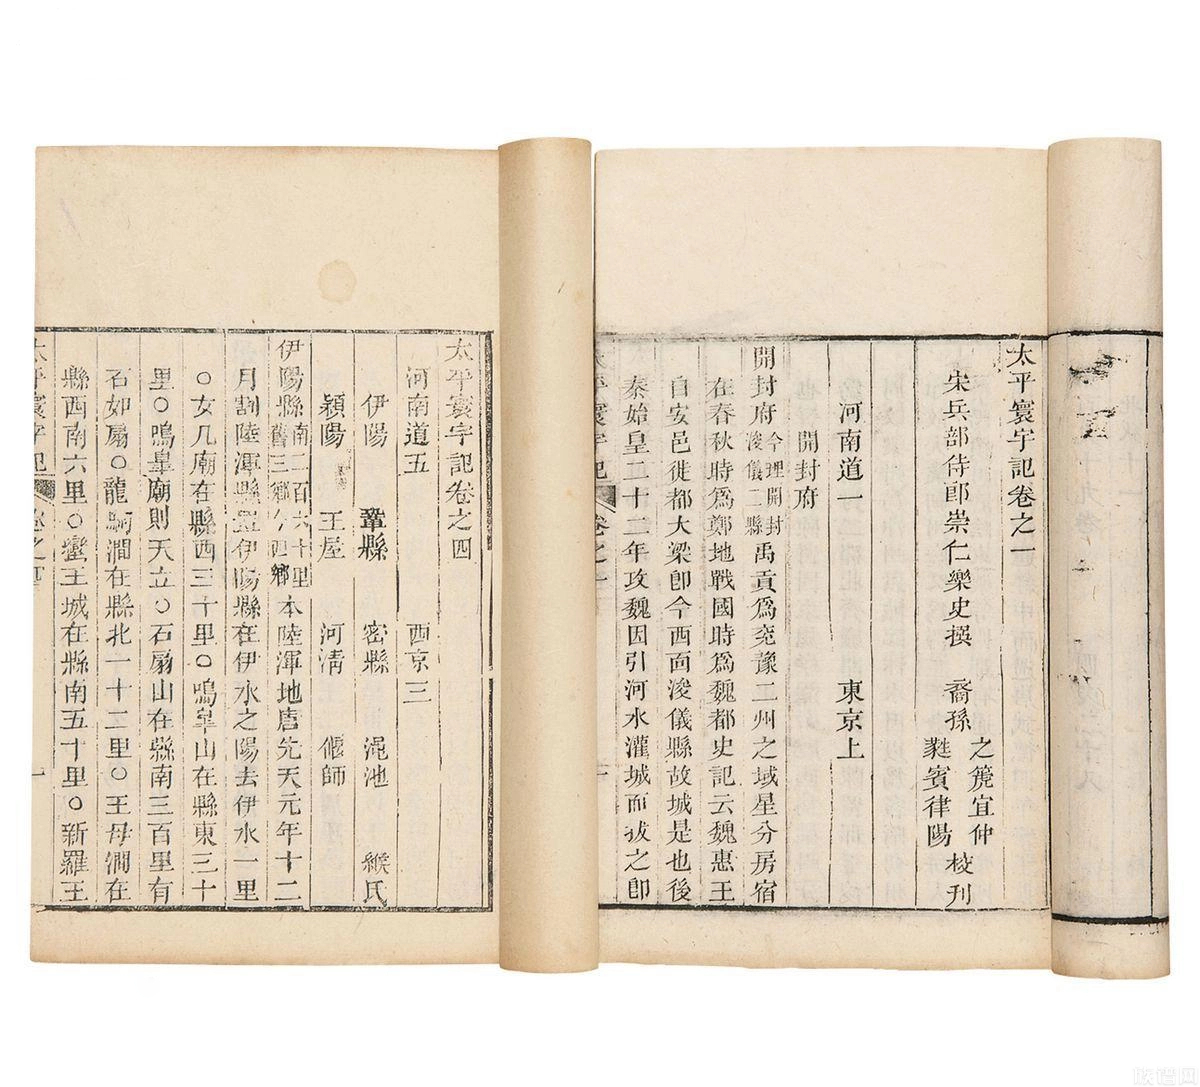 太平寰宇記卷之一
宋兵部侍郎崇仁樂史撰 裔孫
之篪宜仲
蕤賓律陽
校刊
河南道一 東京上
開封府
開封府今理開封浚儀二縣禹貢爲兖豫二州之域星分房宿
在春秋時爲鄭地戰國時爲魏都史記云魏惠王
自安邑徙都大梁卽今西面浚儀縣故城是也後
秦始皇二十二年攻魏因引河水灌城而拔之卽
太平寰宇記 卷之一 一
太平寰宇記卷之四
河南道五 西京三
伊陽 鞏縣 密縣 澠池 緱氏
潁陽 王屋 河清 偃師
伊陽縣南二百六十里舊三鄉今四鄉本陸渾地唐先天元年十二
月割陸渾縣置伊陽縣在伊水之陽去伊水一里
○女几廟在縣西三十里○鳴臯山在縣東三十
里○鳴臯廟則天立○石扇山在縣南三百里有
石如扇○龍駒澗在縣北一十二里○王母澗在
縣西南六里○蠻王城在縣南五十里○新羅王
太平寰宇記 卷之四 一
族譜网